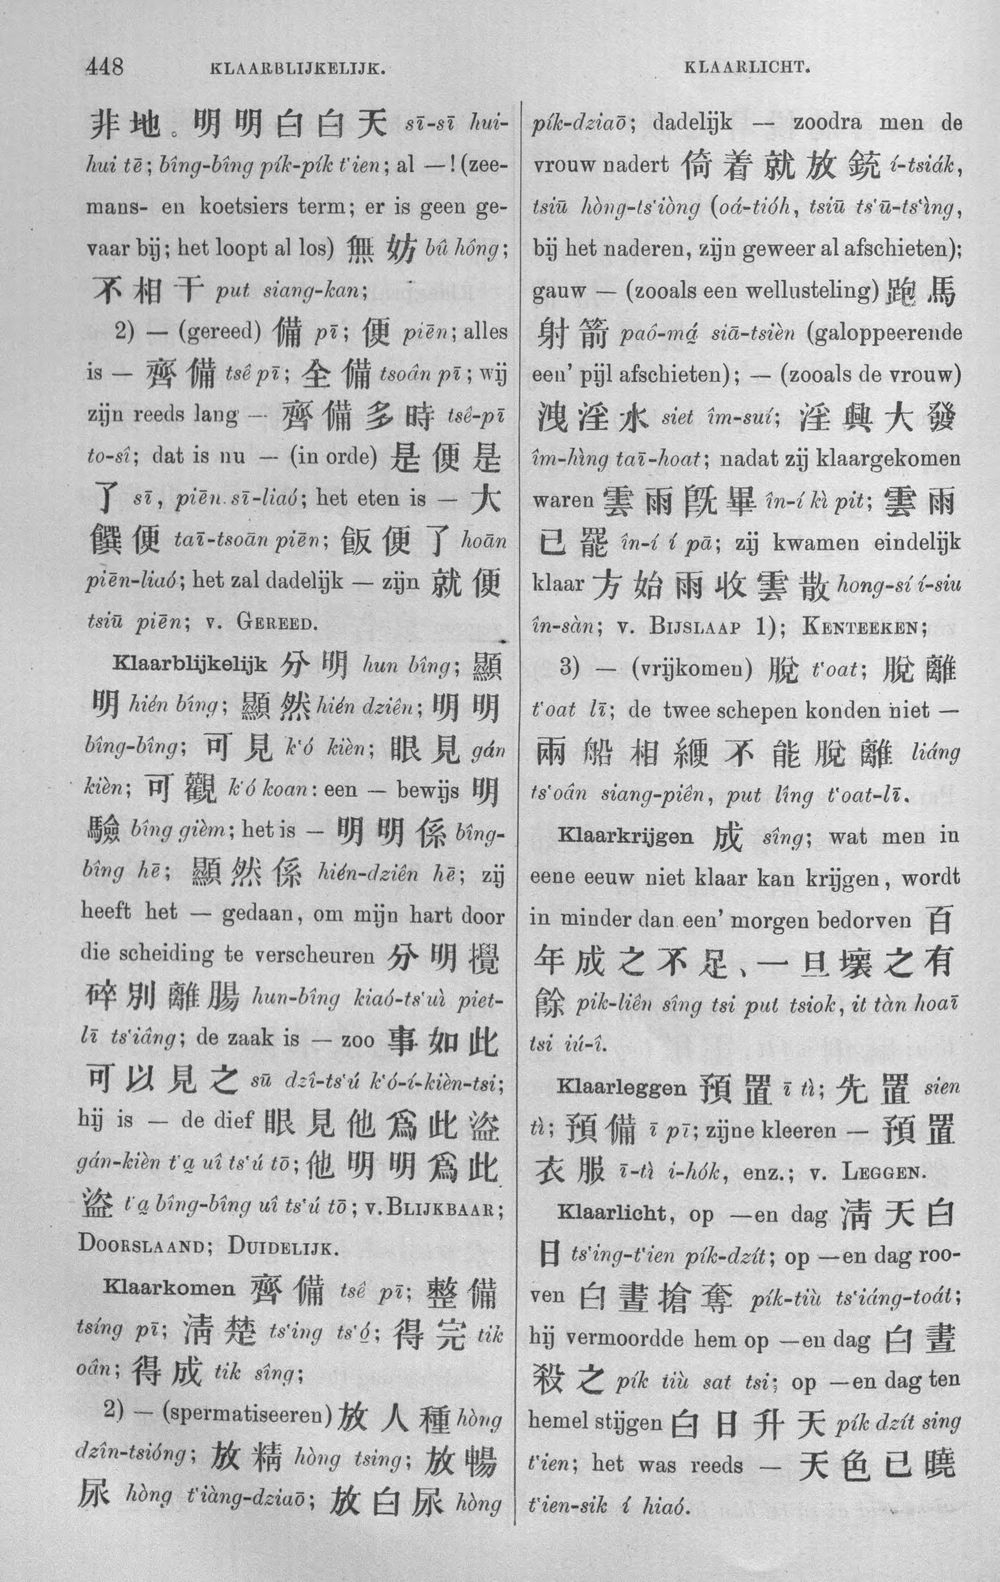 448 KLAARBLIJKELIJK. KLAARLICHT.
非地。明明白白天 sī-sī hui-
hui tē; bîng-bîng pík-pík t‘ien; al —! (zee-
mans- en koetsiers term; er is geen ge-
vaar bij; het loopt al los) 無妨 bû hông;
不相干 put siang-kan;
2) — (gereed) 備 pī; 便 piēn; alles
is — 齊備 tsê pī; 全備 tsoân pī; wij
zijn reeds lang — 齊備多時 tsê-pī
to-sî; dat is nu — (in orde) 是便是
了 sī, piēn sī-liaó; het eten is — 大
饌便 taī-tsoān piēn; 飯便了 hoān
piēn-liaó; het zal dadelijk — zijn 就便
tsiū piēn; v. GEREED.
Klaarblijkelijk 分明 hun bîng; 顯
明 hién bîng; 顯然 hién dziên; 明明
bîng-bîng; 可見 k‘ó kièn; 眼見 gán
kièn; 可觀 k‘ó koan: een — bewijs 明
驗 bîng gièm; het is — 明明係 bîng-
bîng hē; 顯然係 hién-dziên hē; zij
heeft het — gedaan, om mijn hart door
die scheiding te verscheuren 分明攪
碎別離腸 hun-bîng kiaó-ts‘uì piet-
lī ts‘iâng; de zaak is — zoo 事如此
可以見之 sū dzî-ts‘ú k‘ó-í-kièn-tsi;
hij is — de dief 眼見他爲此盜
gán-kièn t‘a̤ uî ts‘ú tō; 他明明爲此
盜 t‘a̤ bîng-bîng uî ts‘ú tō; v. BLIJKBAAR;
DOORSLAAND; DUIDELIJK.
Klaarkomen 齊備 tsê pī; 整備
tsíng pī; 清楚 ts‘ing ts‘ó̤; 得完 tik
oân; 得成 tik sîng;
2) — (spermatiseeren) 放人種 hòng
dzîn-tsióng; 放精 hòng tsing; 放暢
尿 hòng t‘iàng-dziaō; 放白尿 hòng
pík-dziaō; dadelijk — zoodra men de
vrouw nadert 倚着就放銃 í-tsiák,
tsiū hòng-ts‘iòng (oá-tióh, tsiū ts‘ū-ts‘ìng,
bij het naderen, zijn geweer al afschieten);
gauw — (zooals een wellusteling) 跑馬
射箭 paó-má̤ siā-tsièn (galoppeerende
een’ pijl afschieten); — (zooals de vrouw)
洩淫水 siet îm-suí; 淫興大發
îm-hìng taī-hoat; nadat zij klaargekomen
waren 雲雨旣畢 în-í kì pit; 雲雨
已罷 în-í í pā; zij kwamen eindelijk
klaar 方始雨收雲散 hong-sí í-siu
în-sàn; v. BIJSLAAP 1); KENTEEKEN;
3) — (vrijkomen) 脫 t‘oat; 脫離
t‘oat lī; de twee schepen konden niet —
兩船相緶不能脫離 liáng
ts‘oân siang-piên, put lîng t‘oat-lī.
Klaarkrijgen 成 sîng; wat men in
eene eeuw niet klaar kan krijgen, wordt
in minder dan een’ morgen bedorven 百
年成之不足、一旦壞之有
餘 pik-liên sîng tsi put tsiok, it tàn hoaī
tsi iú-î.
Klaarleggen 預置 ī tì; 先置 sien
tì; 預備 ī pī; zijne kleeren — 預置
衣服 ī-tì i-hók, enz.; v. LEGGEN.
Klaarlicht, op —en dag 清天白
日 ts‘ing-t‘ien pík-dzít; op —en dag roo-
ven 白晝搶奪 pík-tiù ts‘iáng-toát;
hij vermoordde hem op —en dag 白晝
殺之 pík tiù sat tsi; op —en dag ten
hemel stijgen 白日升天 pík dzít sing
t‘ien; het was reeds — 天色已曉
t‘ien-sik í hiaó.